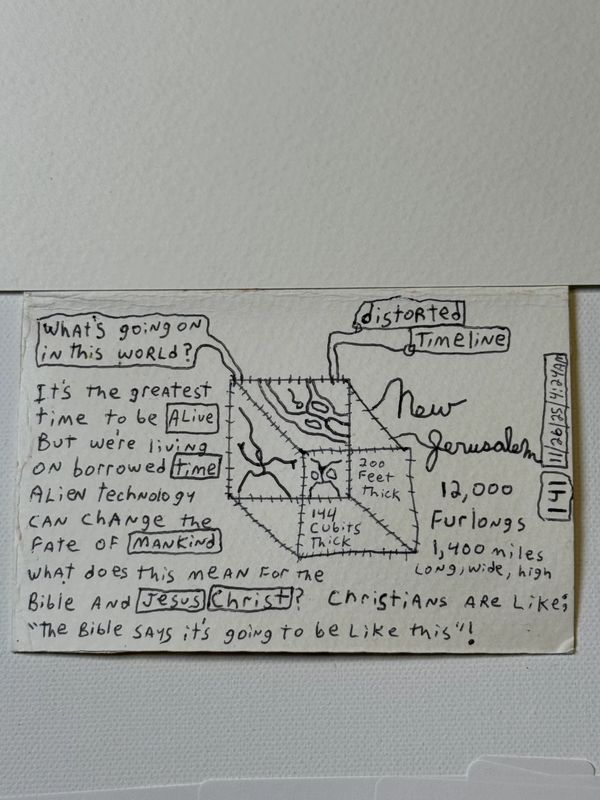 What's going on
in this world?
distorted
Timeline
It's the greatest
time to be Alive
But we're living
on borrowed time
Alien technology
can change the
fate of mankind
What does this mean for the
Bible and Jesus Christ? Christians are like:
"The Bible says it's going to be like this"!
200
Feet
thick
144
Cubits
Thick
New
Jerusalem
12,000
Furlongs
1,400 miles
Long, wide, high
11/26/25/4:24AM
141